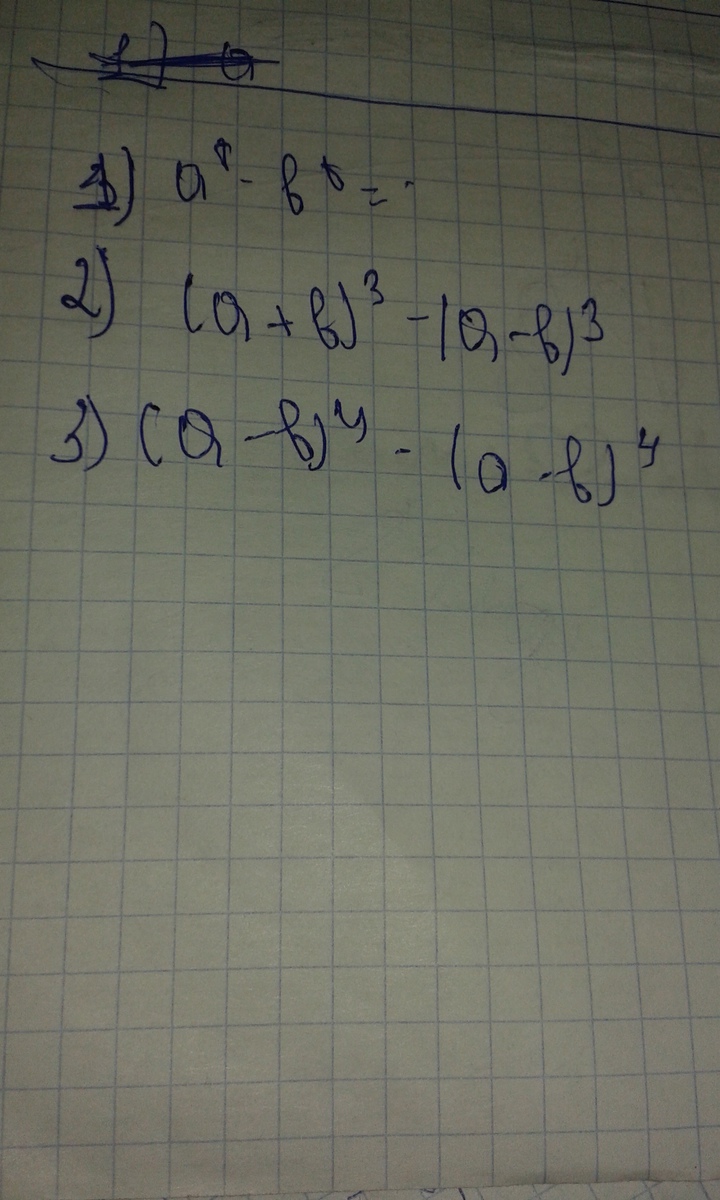 1) a⁸ - b⁸ =
2) (a + b)³ - (a - b)³
3) (a - b)⁴ - (a - b)⁴